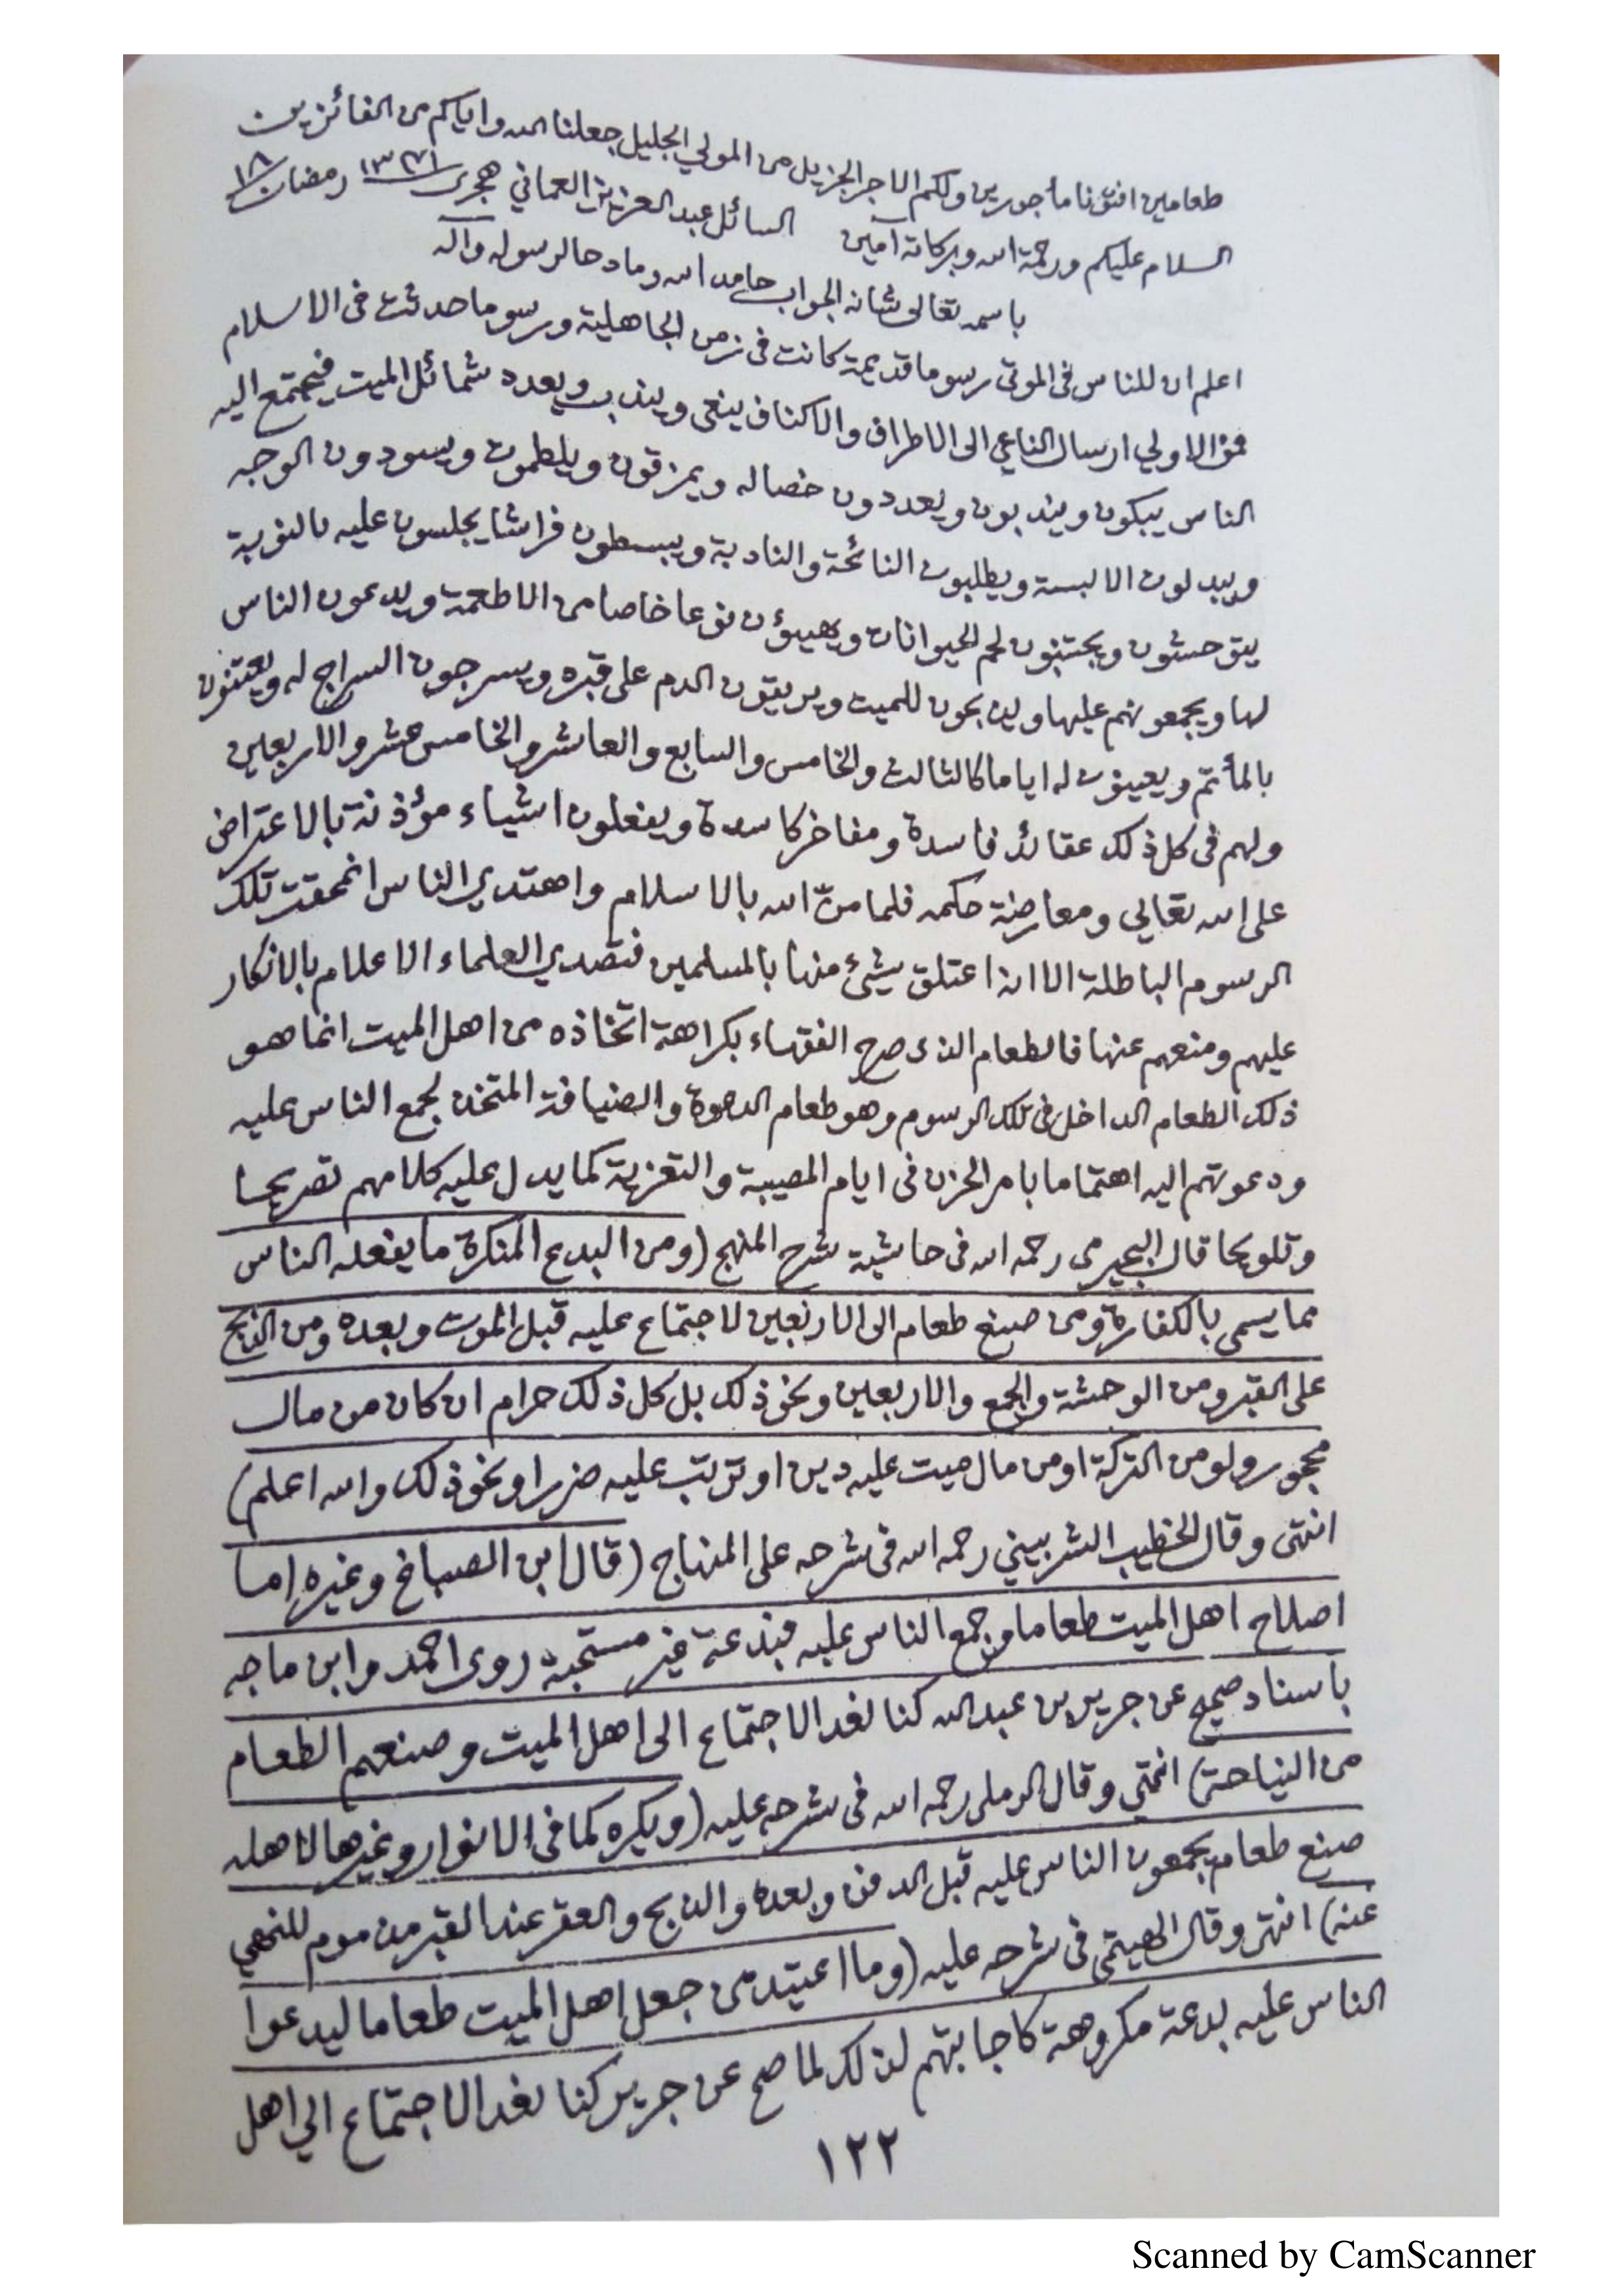 طعامين افتونا مأجورين ولكم الاجر الجزيل من المولي الجليل جعلنا الله واياكم من الفائزين
السلام عليكم ورحمة الله وبركاته آمين السائل عبد العزيز العماني هجرى ١٣٧١ رمضان ١٨
باسمه تعالى شانه الجواب حامدا لله ومادحا لرسوله وآله
اعلم ان للناس فى الموتى رسوما قديمة كانت فى زمن الجاهلية ورسوما حدثت فى الاسلام
فمن الاولي ارسال الناعي الى الاطراف والاكناف ينعى ويندب ويعدد شمائل الميت فيجتمع اليه
الناس يبكون ويندبون ويعددون خصاله ويمزقون ويلطمون ويسودون الوجه
ويبدلون الالبسة ويطلبون النائحة والنادبة ويبسطون فراشا يجلسون عليه بالنوبة
يتوحشون ويجتنبون لحم الحيوانات ويهيؤن نوعا خاصا من الاطعمة ويدعون الناس
لها ويجمعونهم عليها ويذبحون للميت ويريقون الدم على قبره ويسرجون السراج له ويعتنون
بالمأتم ويعينون له اياما كالثالث والخامس والسابع والعاشر والخامس عشر والاربعين
ولهم فى كل ذلك عقائد فاسدة ومفاخر كاسدة ويفعلون اشياء مؤذنة بالاعتراض
على الله تعالي ومعارضة حكمه فلما منّ الله بالاسلام واهتدي الناس انمحقت تلك
الرسوم الباطلة الا انه اعتلق شيئ منها بالمسلمين فتصدي العلماء الاعلام بالانكار
عليهم ومنعهم عنها فالطعام الذى صرح الفقهاء بكراهة اتخاذه من اهل الميت انما هو
ذلك الطعام الداخل فى تلك الرسوم وهو طعام الدعوة والضيافة المتخذ لجمع الناس عليه
ودعوتهم اليه اهتماما بامر الحزن فى ايام المصيبة والتعزية كما يدل عليه كلامهم تصريحا
وتلويحا قال البجيرمى رحمه الله فى حاشية شرح المنهج (ومن البدع المنكرة ما يفعله الناس
مما يسمى بالكفارة ومن صنع طعام الى الاربعين لاجتماع عليه قبل الموت وبعده ومن الذبح
على القبر ومن الوحشة والجمع والاربعين ونحو ذلك بل كل ذلك حرام ان كان من مال
محجور ولو من التركة او من مال ميت عليه دين او ترتب عليه ضررا ونحو ذلك والله اعلم)
انتهى وقال الخطيب الشربيني رحمه الله فى شرحه على المنهاج (قال ابن الصباغ وغيره اما
اصلاح اهل الميت طعاما وجمع الناس عليه فبدعة غير مستحبة روى احمد وابن ماجه
باسناد صحيح عن جرير بن عبد الله كنا نعد الاجتماع الى اهل الميت وصنعهم الطعام
من النياحة) انتهي وقال الرملى رحمه الله فى شرحه عليه (ويكره كما فى الانوار وغيرها لاهله
صنع طعام يجمعون الناس عليه قبل الدفن وبعده والذبح والعقر عند القبر مذموم للنهي
عنه) انتهى وقال الهيتمى فى شرحه عليه (وما اعتيد من جعل اهل الميت طعاما ليدعوا
الناس عليه بدعة مكروهة كاجابتهم لذلك لما صح عن جرير كنا نعد الاجتماع الي اهل
١٢٢
Scanned by CamScanner